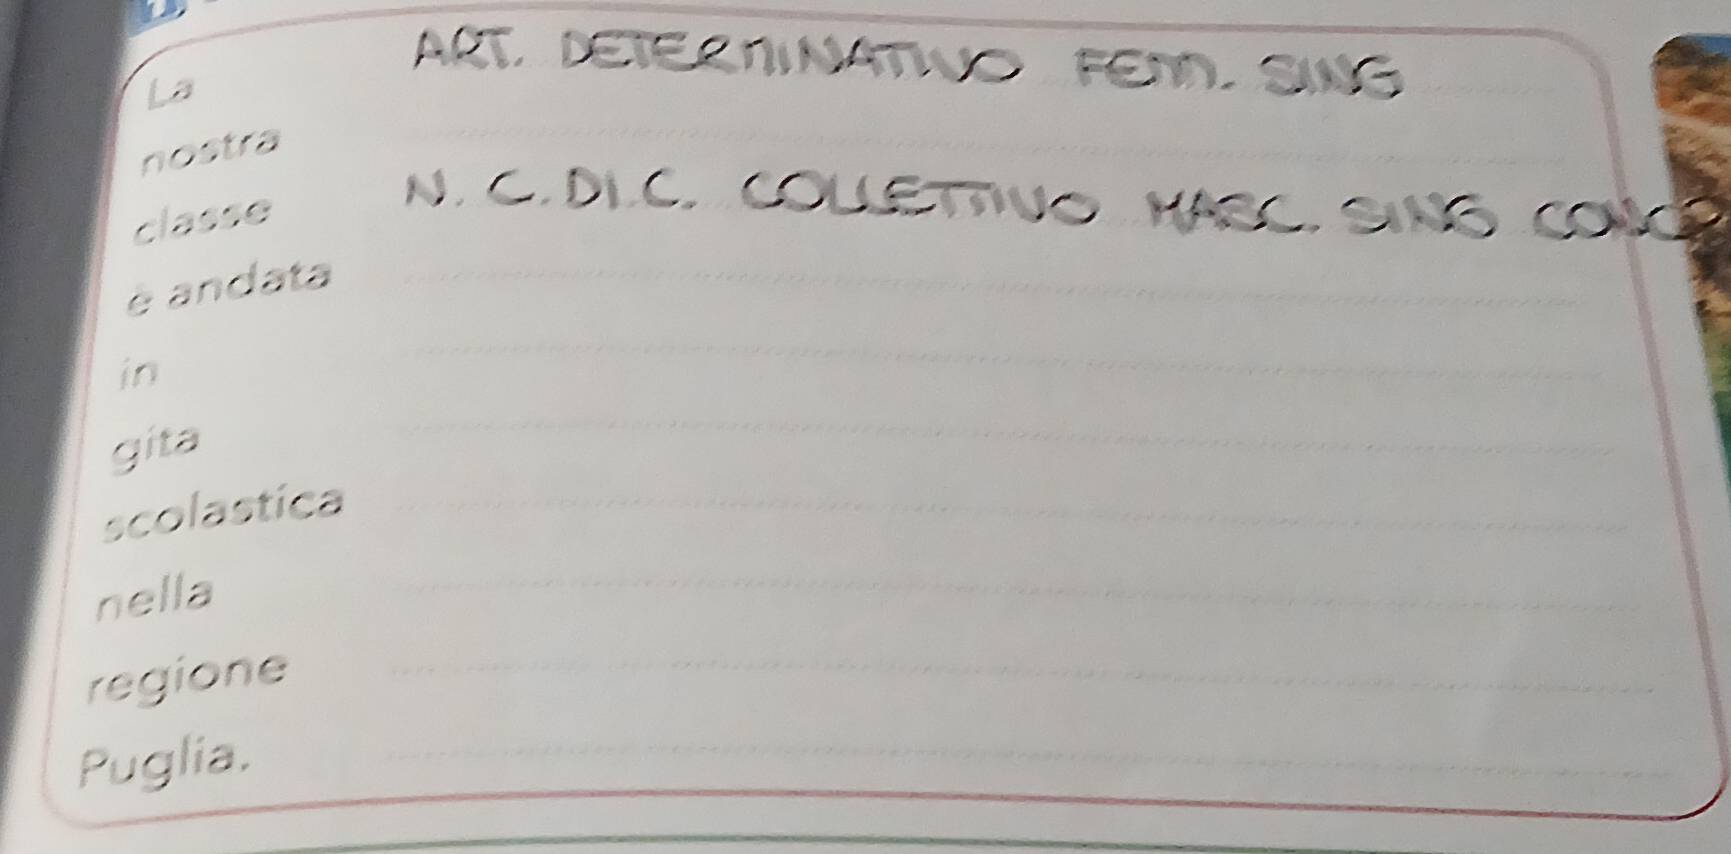 La ART. DETERMINATIVO FEM. SING
nostra
classe N. C. DI. C. COLLETTIVO MASC. SING CONC
è andata
in
gita
scolastica
nella
regione
Puglia.